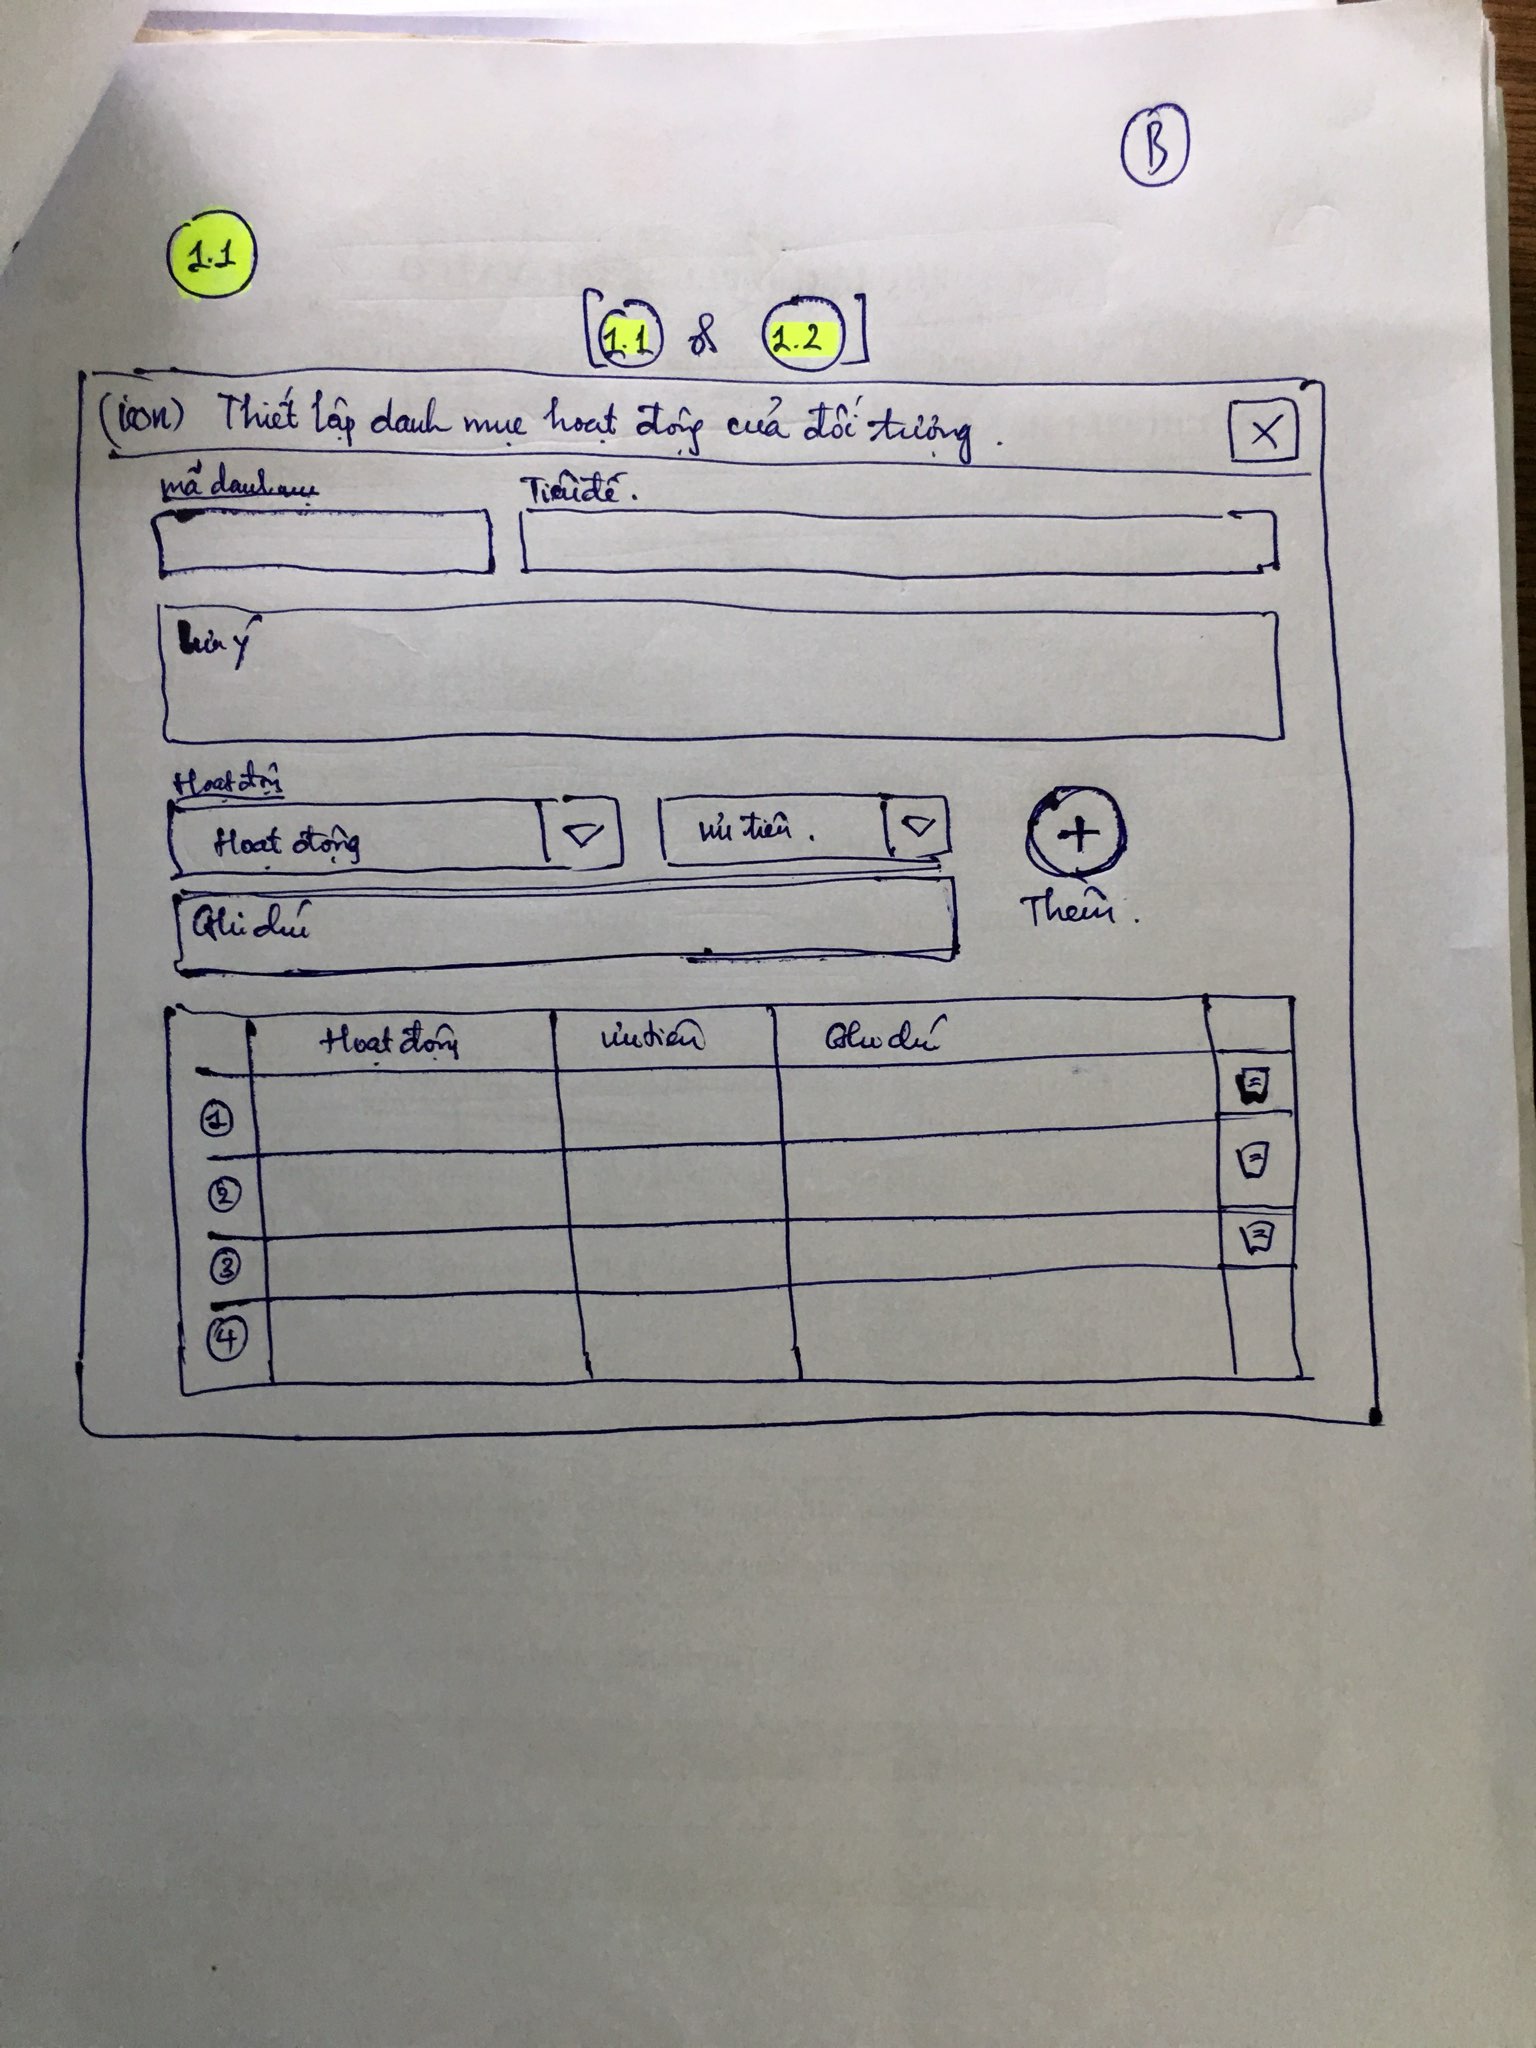 B
1.1
[1.1 & 1.2]
(icon) Thiết lập danh mục hoạt động của đối tượng. X
mã danh mục Tiêu đề.
Lưu ý
Hoạt động
Hoạt động ưu tiên. +
Ghi chú Thêm.
Hoạt động ưu tiên Ghi chú
1
2
3
4